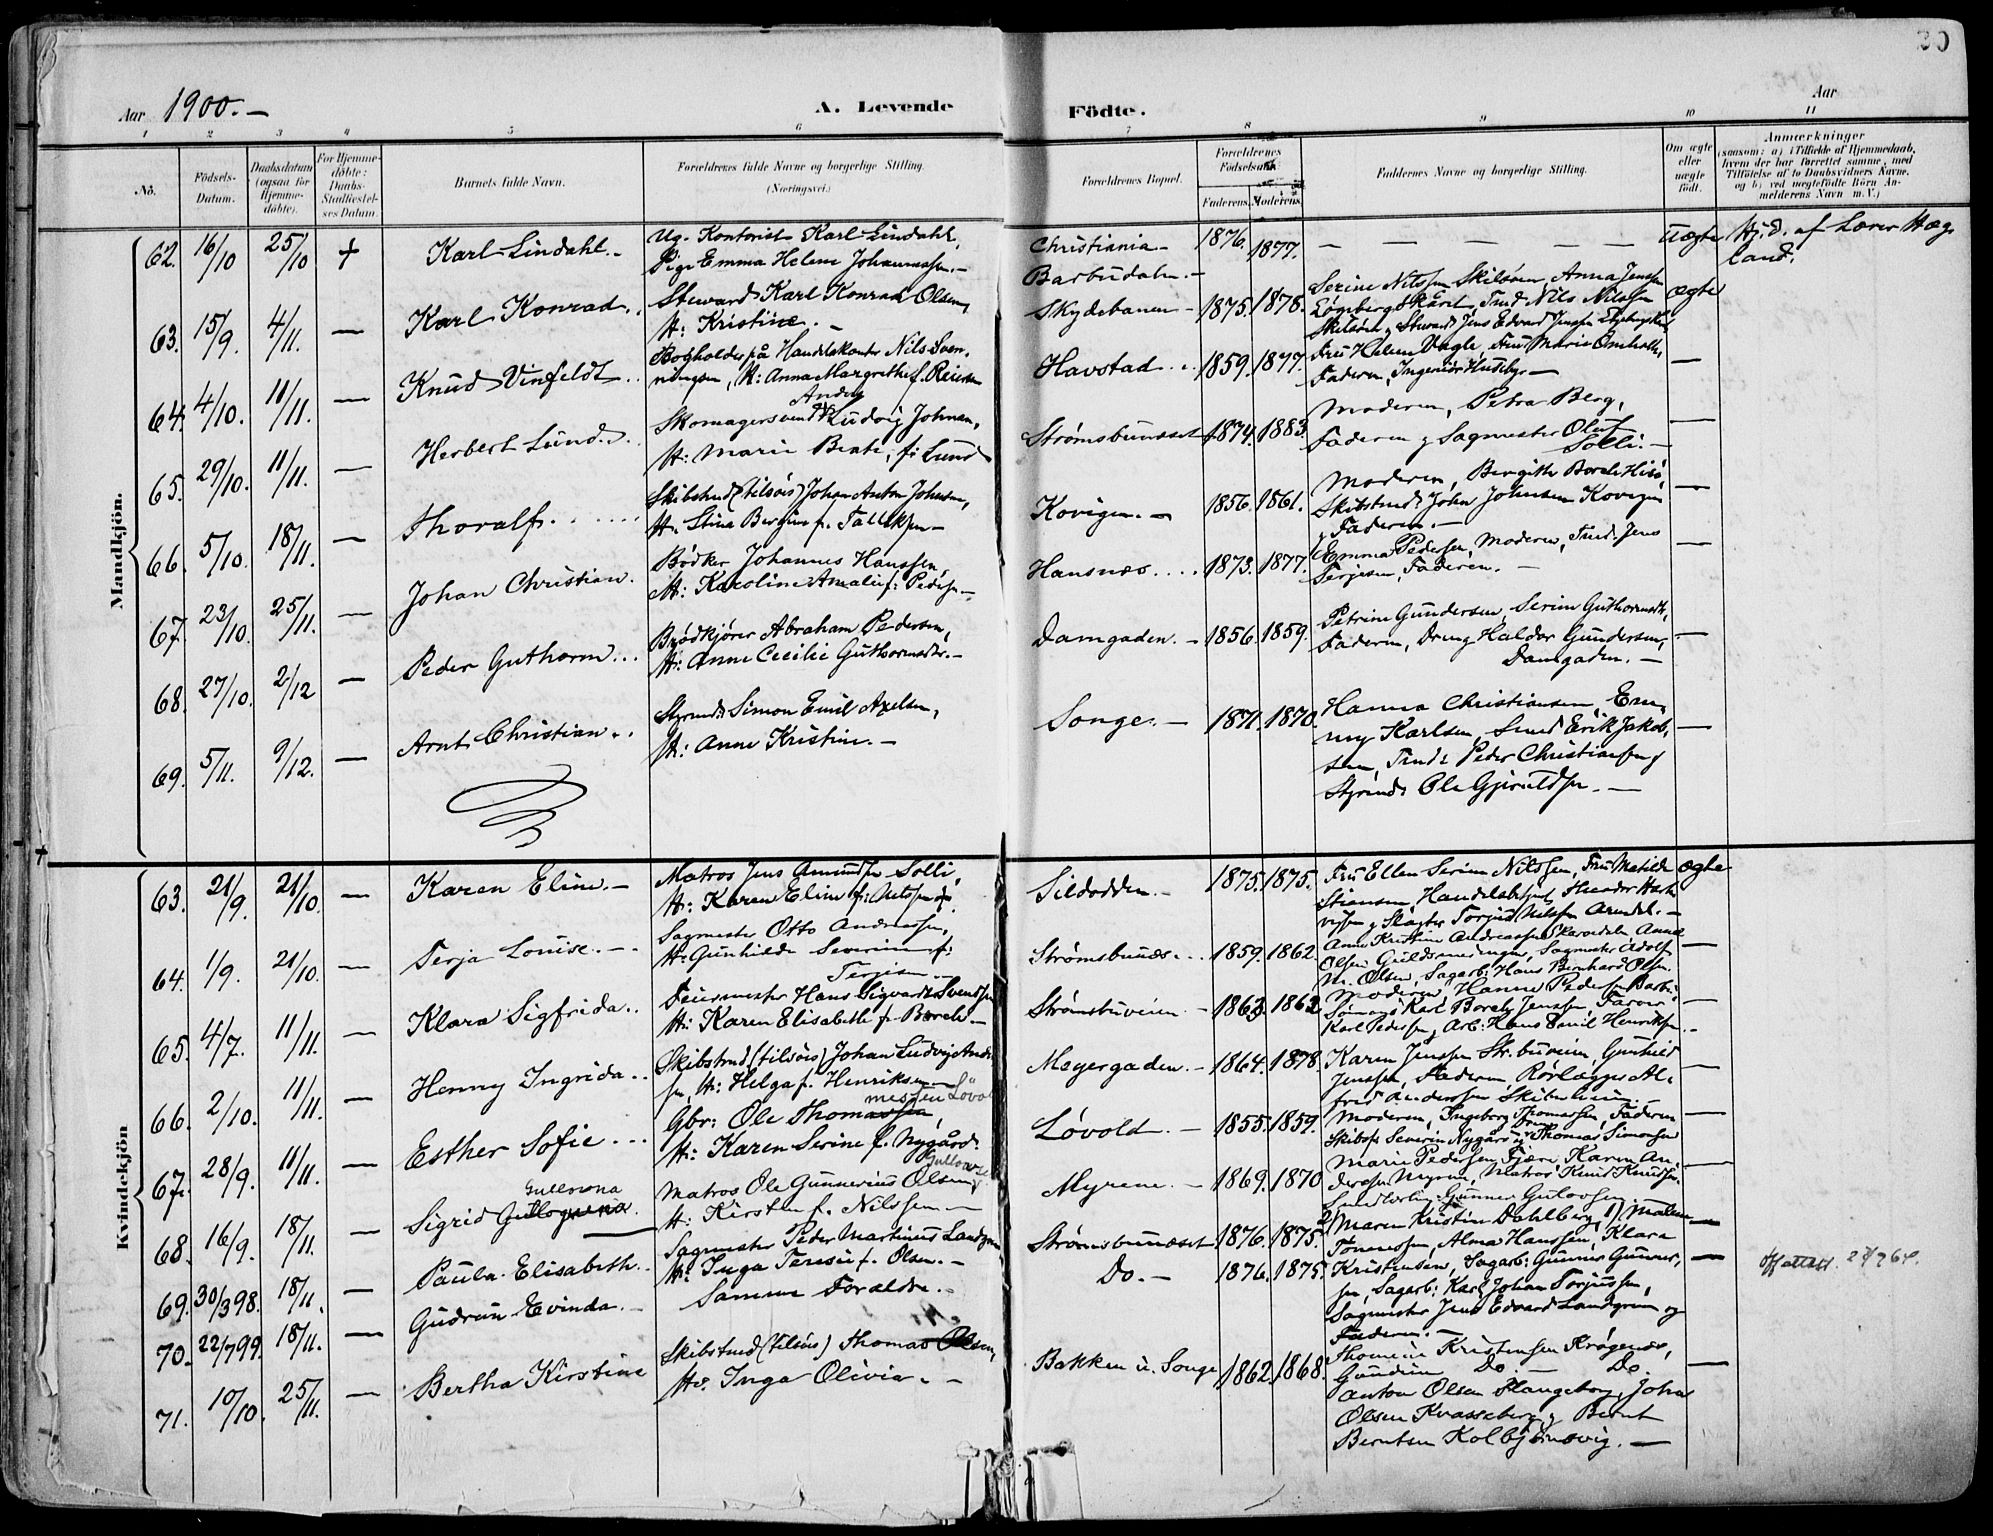 30
Aar 1900.—
A. Levende
Födte.
Aar
1 2 3 4 5 6 7 8 9 10 11
No.
Födsels-
Datum.
Daabsdatum
(ogsaa for
Hjemme-
döbte).
For Hjemme-
döbte:
Daabs-
Stadfæstel-
ses Datum.
Barnets fulde Navn.
Forældrenes fulde Navne og borgerlige Stilling.
(Næringsvei.)
Forældrenes Bopæl.
Forældrenes
Födselsaar
Faderens. Moderens.
Faddernes Navne og borgerlige Stilling.
Om ægte
eller
uægte
födt.
Anmærkninger
(saasom: a) i Tilfælde af Hjemmedaab,
hvem der har forrettet samme, med
Tilföielse af to Daabsvidners Navne,
og b) ved uægtefödte Börn An-
melderens Navn m. V.)
Mandkjön.
62. 16/10 25/10 + Karl Lindahl.-
Ug. Kontorist Karl Lindahl,
Pige Emma Helene Johannessen.—
Christiania—
Barbudalen.—
1876. 1877. — — — — — Uægte
Hj.d. af Lærer Hæg-
land.
63. 15/9. 4/11. — Karl Konrad..
Steward Karl Konrad Olsen,
H: Kristine.—
Skydebanen— 1875. 1878.
Serine Nilssen Skilsöen, Anna Jenssen
Tmd. Nils Nilssen
Skilsöen, Steward Jens Edvard Jenssen
ægte
64. 4/10. 11/11. — Knud Vinfeldt..
Bogholder på Handelskontor Nils Sven-
ningsen, H: Anna Margrethe f. Reiersen
Havstad... 1859. 1877.
Fru Helene Vagle, Fru Marie Omholt,
Faderen, Ingeniör Huseby— —
65. 29/10. 11/11. — Herbert Lund..
Andr
Skomagersvend Ludvig Johnsen,
H: Marie Beate, f: Lund
Strømsbunæset 1874. 1883.
Moderen, Petra Berg,
Faderen, Sagmester Oluf
Solli.— —
66. 5/10. 18/11. — Thoralf......
Skibstmd (tilsöis) Johan Anton Johnsen,
H. Stina Bergine f. Tallaksen—
Kovigen.— 1856. 1861.
Moderen, Bergitte Borch His,
Skibstmd. John Johnsen Kovigen
, Faderen.— —
67. 23/10. 25/11. — Johan Christian.
Bödker Johannes Hanssen,
H: Karoline Amalie f: Peders.—
Hansnæs.... 1873. 1877.
Emma Pedersen, Moderen, Tmd. Jens
Terjesen, Faderen.— —
68. 27/10. 2/12 — Peder Guthorm...
Brödkjörer Abraham Pedersen,
H: Anne Cecilie Guthormsdtr.—
Damgaden.— 1856. 1859.
Petrine Gundersen, Serine Guthormsdtr,
Faderen, Dreng Haldor Gundersen,
Damgaden.— —
69. 5/11. 9/12. — Arnt Christian..
Styrmd: Simon Emil Axelsen,
H: Anne Kristine.—
Songe.— 1871. 1870.
Hanna Christiansen, Em-
my Karlsen, Smed Erik Jakob-
sen, Tmd: Peder Christiansen,
Styrmd: Ole Gjeruldsen.— —
Kvindekjön
63. 21/9. 21/10. — Karen Eline.—
Matros Jens Amundsen Solli,
H: Karen Eline f: Nilssen.
Sildodden.— 1875. 1875.
Fru Ellen Serine Nilssen, Fru Matilde
Stiansen, Handelsbetjent Theodor Hart-
vigsen, Slagter Torjus Nilssen Arendal.—
ægte
64. 1/9. 21/10. — Terja Louise.—
Sagmester Otto Andreassen,
H: Gunhilde Severine f:
Terjesen—
Strømsbunæs... 1859. 1862.
Anne Kristine Andreassen Skarvedalen, Anna
Olsen Guldsmedengen, Sagmester Adolf
M. Olsen, Sagarb: Hans Bernhard Olsen. —
65. 4/7. 11/11. — Klara Sigfrida..
Feiermester Hans Sigvardt Svendsen
H: Karen Elisabeth f. Borch—
Strømsbuveien— 1863. 1862
Moderen, Hanne Pedersen Barbu,
Sömand Karl Borch Jenssen, Farver
Karl Pedersen, Arb: Hans Emil Henriksen. —
66. 2/10. 11/11. — Henny Ingrida..
Skibstmd (tilsöis) Johan Ludvig Ander-
sen, H: Helga f. Henriksen—
Meyergaden.— 1864. 1878.
Karen Jenssen Str.buveien, Gunhild
Jenssen, Faderen, Rörlægger Al-
fred Anderssen Skibsheien.— —
67. 28/9. 11/11. — Esther Sofie...
messen Lövold
Gbr: Ole Thomassen,
H: Karen Serine f. Nygård.
Løvold.— 1855. 1859.
Moderen, Ingeborg Thomassen, Faderen
Skibsf. Severin Nygård, Thomas Simonsen —
68. 16/9. 18/11. — Sigrid
Gullovna
Matros Ole Gunnerius Olsen,
H: Kirsten f. Nilssen—
Myrene.— 1869. 1870
Marie Pedersen Fjære, Karen An-
dersen Myrene, Matros Knud Knudsen
Gunner Gulovsen —
69. 30/3 98. 18/11. — Paula Elisabeth.
Sagmester Peder Martinus Landgren
H: Inga Terese f. Olsen.—
Strømsbunæset 1876. 1875.
2) Maren Kristine Dahlberg, 1) Malene
Tönnessen, Alma Hanssen, Klara —
70. 22/7 99. 18/11. — Gudrun Evinda.—
Samme Forældre.—
Do.— 1876. 1875.
Kristensen, Sagarb: Gunnar Gunner-
sen, Sagarb: Karl Johan Torjussen,
Sagmester Jens Edvard Landgren og
Faderen.— —
Attest. 23/7 64.
71. 10/10. 25/11. — Bertha Kirstine
Skibstmd (tilsöis) Thomas Olsen,
H: Inga Olivia.—
Bakken u. Songe 1862. 1868.
Thomine Kristensen Krögenæs,
Gundine Do.— Do.
Anton Olsen Slangeborg, Johan
Olsen Kvasseberg, Bernt
Berntsen Kolbjörnsvig.— —